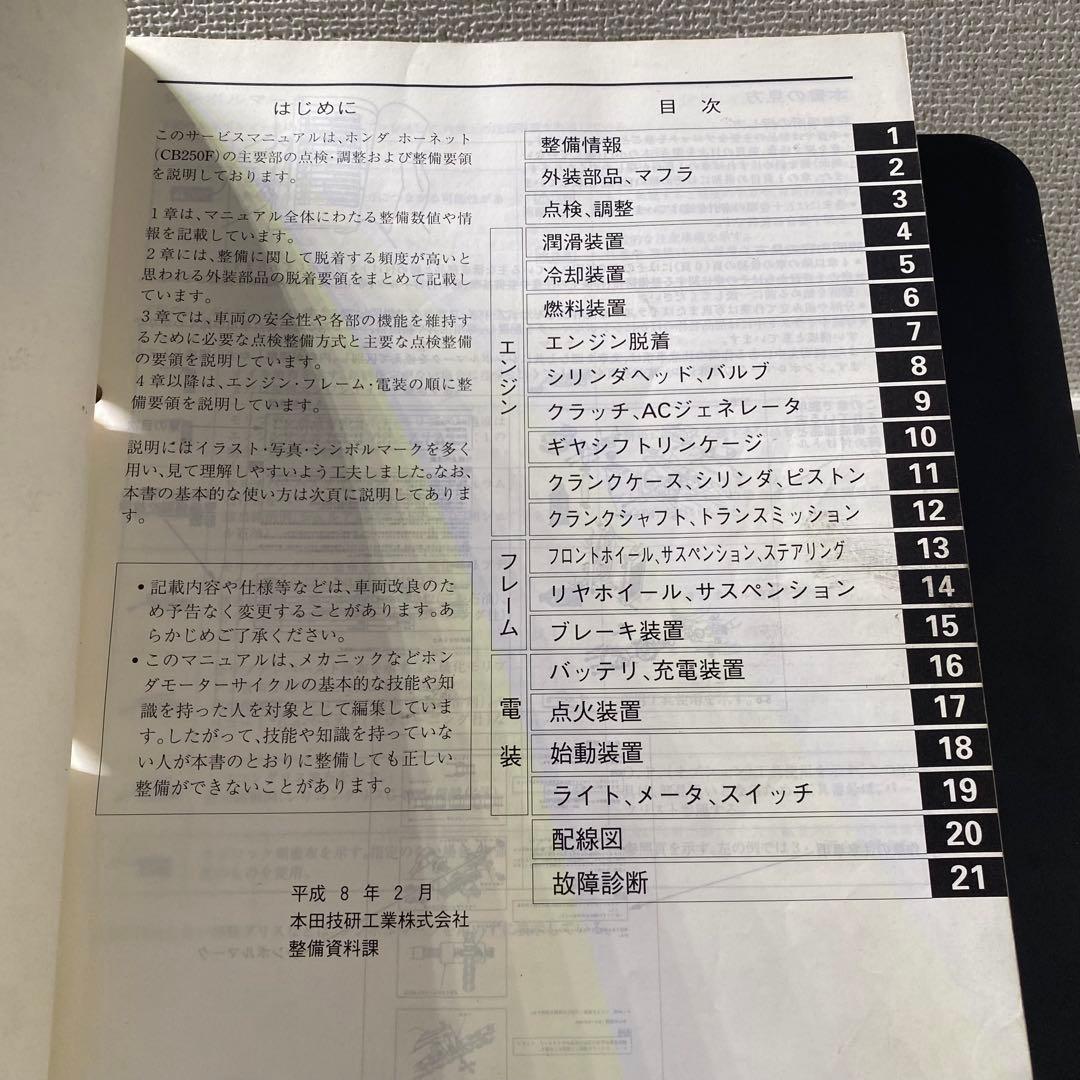 はじめに
このサービスマニュアルは、ホンダ ホーネット
(CB250F)の主要部の点検・調整および整備要領
を説明しております。
1章は、マニュアル全体にわたる整備数値や情
報を記載しています。
2章には、整備に関して脱着する頻度が高いと
思われる外装部品の脱着要領をまとめて記載し
ています。
3章では、車両の安全性や各部の機能を維持す
るために必要な点検整備方式と主要な点検整備
の要領を説明しています。
4章以降は、エンジン・フレーム・電装の順に整
備要領を説明しています。
説明にはイラスト・写真・シンボルマークを多く
用い、見て理解しやすいよう工夫しました。なお、
本書の基本的な使い方は次頁に説明してありま
す。
• 記載内容や仕様等などは、車両改良のた
め予告なく変更することがあります。あ
らかじめご了承ください。
• このマニュアルは、メカニックなどホン
ダモーターサイクルの基本的な技能や知
識を持った人を対象として編集していま
す。したがって、技能や知識を持っていな
い人が本書のとおりに整備しても正しい
整備ができないことがあります。
平成 8 年 2 月
本田技研工業株式会社
整備資料課
目 次
整備情報 1
外装部品、マフラ 2
点検、調整 3
エンジン
潤滑装置 4
冷却装置 5
燃料装置 6
エンジン脱着 7
シリンダヘッド、バルブ 8
クラッチ、ACジェネレータ 9
ギヤシフトリンケージ 10
クランクケース、シリンダ、ピストン 11
クランクシャフト、トランスミッション 12
フレーム
フロントホイール、サスペンション、ステアリング 13
リヤホイール、サスペンション 14
ブレーキ装置 15
電装
バッテリ、充電装置 16
点火装置 17
始動装置 18
ライト、メータ、スイッチ 19
配線図 20
故障診断 21